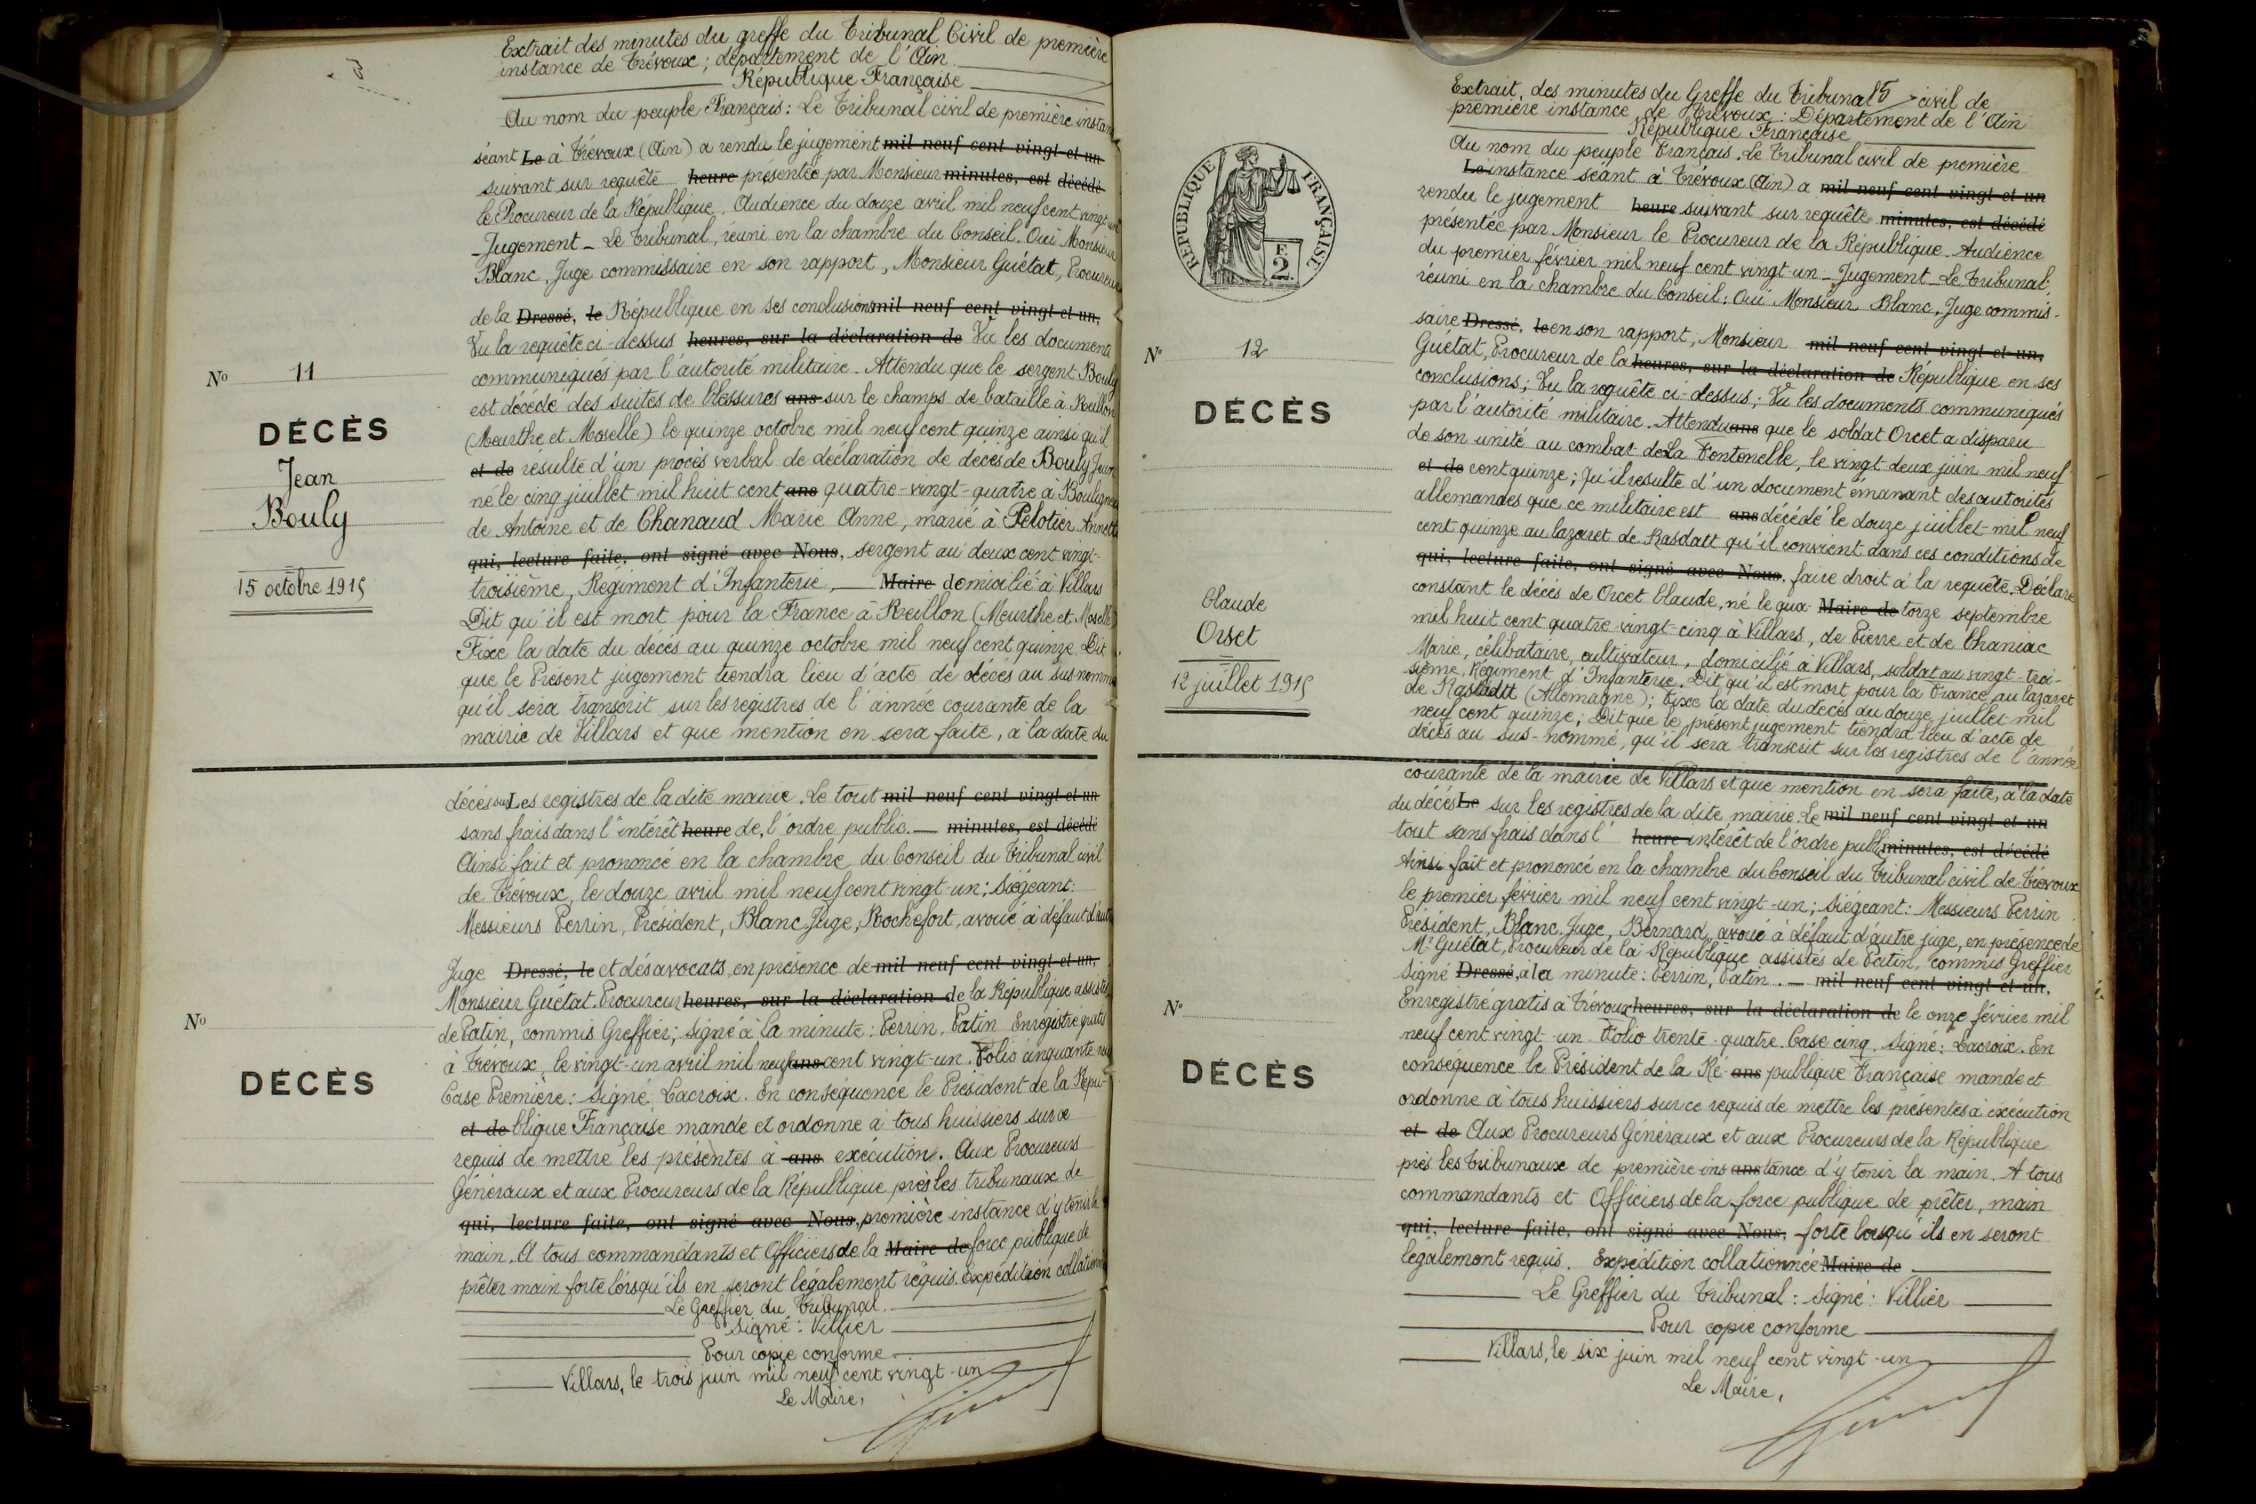 Extrait des minutes du greffe du Tribunal Civil de première
instance de Trévoux ; département de l'Ain
République Française
Au nom du peuple Français : Le Tribunal civil de première instan
séant Le à Trévoux (Ain) a rendu le jugement mil neuf cent vingt-et-un
suivant sur requête heure présentée par Monsieur minutes, est décédé
le Procureur de la République. Audience du douze avril mil neuf cent vingt-un
Jugement - Le Tribunal, réuni en la chambre du Conseil. Oui Monsieur
Blanc, Juge commissaire en son rapport, Monsieur Guétat, Procureur
de la Dressé, le République en ses conclusions mil neuf cent vingt-et-un,
Vu la requête ci-dessus heures, sur la déclaration de Vu les documents
communiqués par l'autorité militaire. Attendu que le sergent Bouly
est décédé des suites de blessures ans sur le champs de bataille à Reillon
(Meurthe et Moselle) le quinze octobre mil neuf cent quinze ainsi qu'il
et de résulte d'un procès verbal de déclaration de décès de Bouly Jean
né le cinq juillet mil huit cent ans quatre-vingt-quatre à Bouligneux
de Antoine et de Chanaud Marie Anne, marié à Pelotier Annette
qui, lecture faite, ont signé avec Nous, sergent au deux cent vingt-
troisième, Régiment d'Infanterie, Maire domicilié à Villars
Dit qu'il est mort pour la France à Reillon (Meurthe et Moselle)
Fixe la date du décès au quinze octobre mil neuf cent quinze. Dit
que le Présent jugement tiendra lieu d'acte de décès au susnommé
qu'il sera transcrit sur les registres de l'année courante de la
mairie de Villars et que mention en sera faite, à la date du
No 11
DÉCÈS
Jean
Bouly
15 octobre 1915
décès sur Les registres de la dite mairie. Le tout mil neuf cent vingt-et-un
sans frais dans l'intérêt heure de l'ordre public. minutes, est décédé
Ainsi fait et prononcé en la chambre du Conseil du Tribunal civil
de Trévoux, le douze avril mil neuf cent vingt-un ; Siégeant :
Messieurs Perrin, Président, Blanc, Juge, Rochefort, avoué à défaut d'autre
Juge Dressé, le et dés avocats, en présence de mil neuf cent vingt-et-un,
Monsieur Guétat, Procureur heures, sur la déclaration de la République assistés
de Patin, commis Greffier ; signé à la minute : Perrin, Patin Enregistré gratis
à Trévoux, le vingt-un avril mil neuf ans cent vingt-un. Folio cinquante neuf
Case Première : Signé Lacroix. En conséquence le Président de la Répu-
et de blique Française mande et ordonne à tous huissiers sur ce
requis de mettre les présentes à ans exécution. Aux Procureurs
Généraux et aux Procureurs de la République près les tribunaux de
qui, lecture faite, ont signé avec Nous, première instance d'y tenir la
main. A tous commandants et Officiers de la Maire de force publique de
prêter main forte lorsqu'ils en seront légalement requis. Expédition collationnée
Le Greffier du Tribunal.
Signé : Villier
Pour copie conforme
Villars, le trois juin mil neuf cent vingt-un
Le Maire,
No
DÉCÈS
Extrait des minutes du Greffe du Tribunal 15 civil de
première instance de Trévoux : Département de l'Ain
République Française
Au nom du peuple Français. Le Tribunal civil de première
Le instance séant à Trévoux (Ain) a mil neuf cent vingt-et-un
rendu le jugement heure suivant sur requête minutes, est décédé
présentée par Monsieur le Procureur de la République. Audience
du premier février mil neuf cent vingt-un - Jugement - Le Tribunal,
réuni en la chambre du Conseil : Oui Monsieur Blanc, Juge commis-
saire Dressé, le en son rapport, Monsieur mil neuf cent vingt-et-un,
Guétat, Procureur de la heures, sur la déclaration de République en ses
conclusions ; Vu la requête ci-dessus ; Vu les documents communiqués
par l'autorité militaire. Attendu ans que le soldat Orcet a disparu
de son unité au combat de La Fontenelle, le vingt deux juin mil neuf
et de cent quinze ; Qu'il resulte d'un document émanant des autorités
allemandes que ce militaire est ans décédé le douze juillet mil neuf
cent quinze au lazaret de Rasdatt qu'il convient dans ces conditions de
qui, lecture faite, ont signé avec Nous, faire droit à la requête. Déclare
constant le décès de Orcet Claude, né le qua- Maire de torze septembre
mil huit cent quatre-vingt-cinq à Villars, de Pierre et de Chaniac
Marie, célibataire, cultivateur, domicilié à Villars, soldat au vingt-troi-
sième Régiment d'Infanterie. Dit qu'il est mort pour la France, au lazaret
de Rastadtt (Allemagne) ; fixe la date du décès au douze juillet mil
neuf cent quinze ; Dit que le présent jugement tiendra lieu d'acte de
décès au sus-nommé, qu'il sera transcrit sur les registres de l'année
RÉPUBLIQUE FRANÇAISE
E
2
No 12
DÉCÈS
Claude
Orset
12 juillet 1915
courante de la mairie de Villars et que mention en sera faite, à la date
du décès Le sur les registres de la dite mairie. Le mil neuf cent vingt-et-un
tout sans frais dans l' heure intérêt de l'ordre public minutes, est décédé
Ainsi fait et prononcé en la chambre du Conseil du Tribunal civil de Trévoux
le premier février mil neuf cent vingt-un ; Siégeant : Messieurs Perrin
Président, Blanc, Juge, Bernard, avoué à défaut d'autre juge, en présence de
Mr Guétat, Procureur de la République assistés de Patin, commis Greffier
Signé Dressé, à la minute : Perrin, Patin. mil neuf cent vingt-et-un,
Enregistré gratis à Trévoux heures, sur la déclaration de le onze février mil
neuf cent vingt-un Folio trente-quatre. Case cinq. Signé : Lacroix. En
conséquence le Président de la Ré- ans publique Française mande et
ordonne à tous huissiers sur ce requis de mettre les présentes à exécution
et de Aux Procureurs Généraux et aux Procureurs de la République
près les Tribunaux de première ins ans tance d'y tenir la main. A tous
commandants et Officiers de la force publique de prêter, main
qui, lecture faite, ont signé avec Nous, forte lorsqu'ils en seront
légalement requis. Expédition collationnée Maire de
Le Greffier du Tribunal : Signé : Villier
Pour copie conforme
Villars, le six juin mil neuf cent vingt-un
Le Maire,
No
DÉCÈS